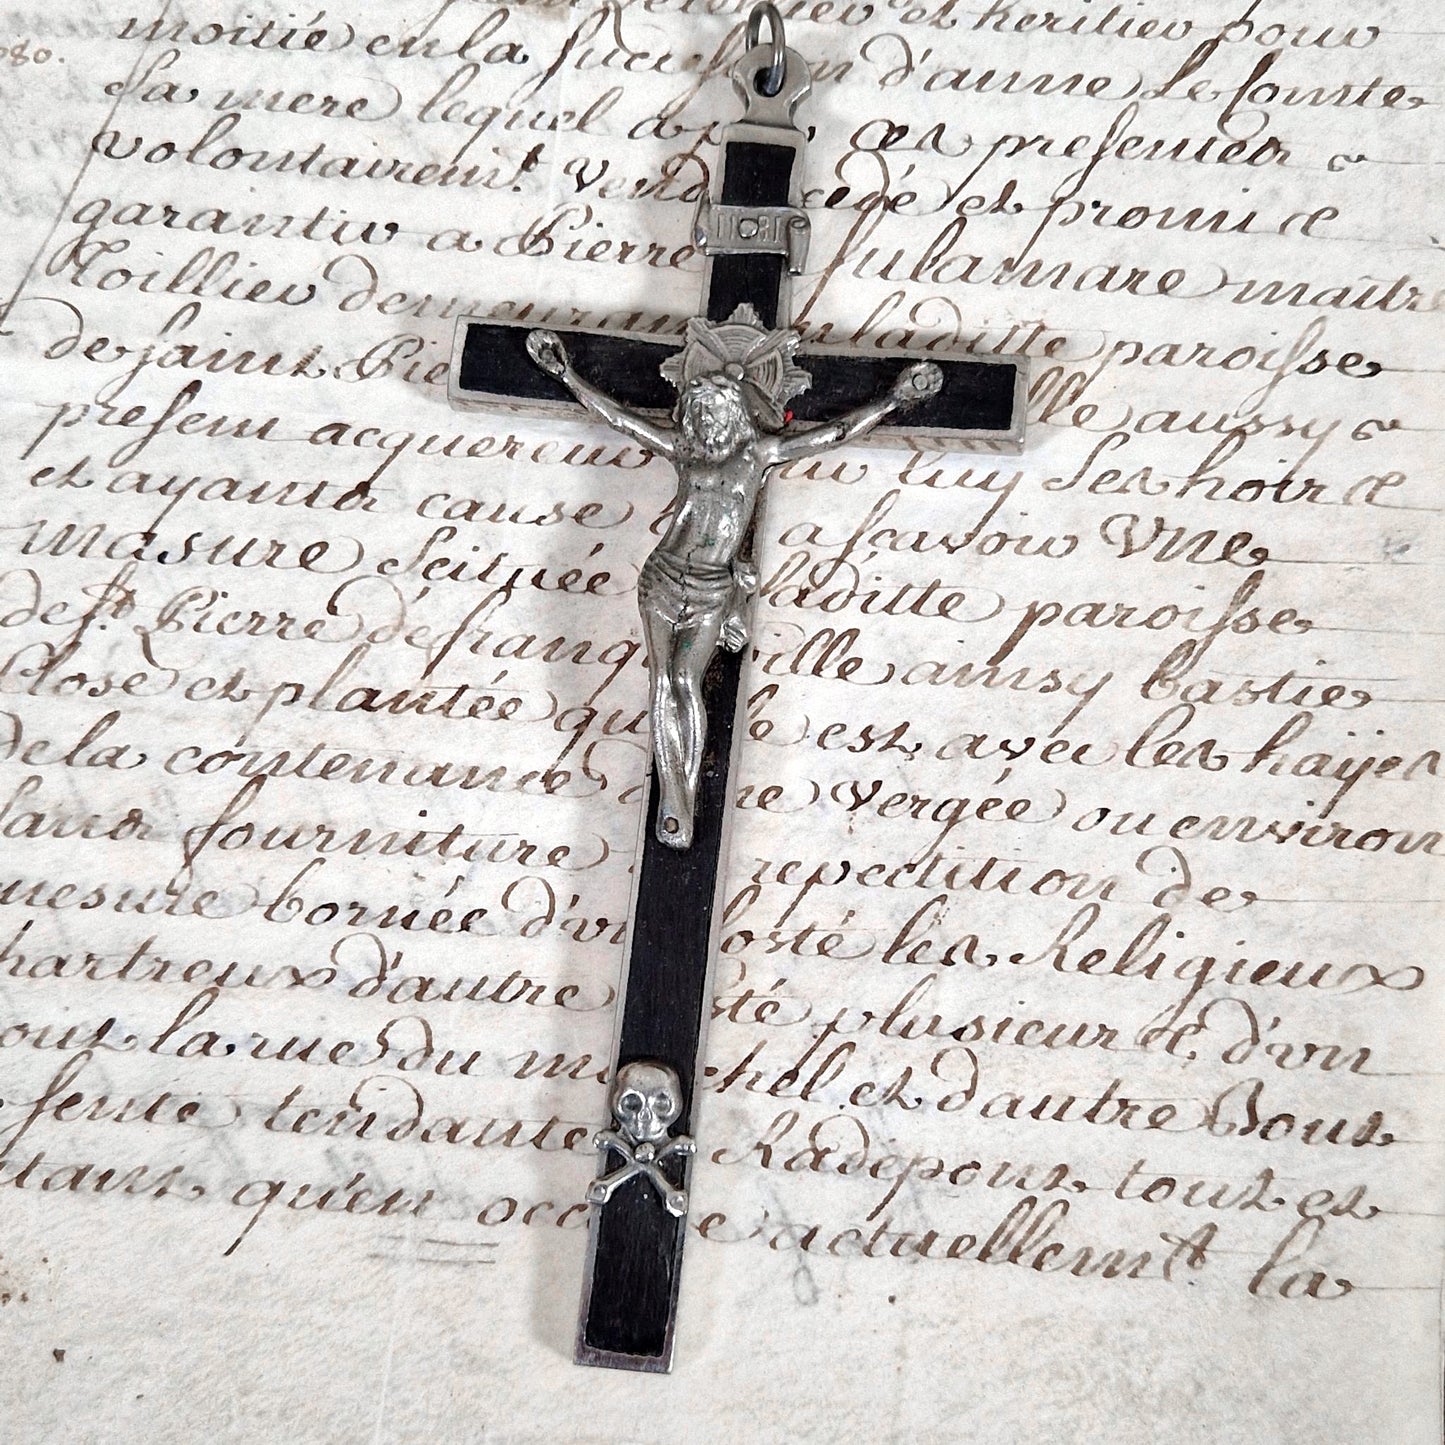 et heritier pour
moitié en la succession d'anne Le fomte
080.
sa mere lequel a p ces presentes
volontairemt. Vend cedé et promis
garantir a Pierre Sulamare maitre
Toillier demeurant en laditte paroisse
de saint Pie lle aussy
present acquereur pour luy ses hoirs
et ayants cause a scavoir Vne
masure scituée laditte paroisse
de st. Pierre de franqueville ainsy bastie
Close et plantée quelle est avec les haÿes
de la contenance d'une vergée ou environ
sans fourniture repectition de
mesure bornée d'vn costé les Religieux
hartreux d'autre sté plusieurs d'vn
bout la rue du mouchel et d'autre Bout
sente tendante Radepont tout et
tant qu'en occupe actuellemt. la
INRI